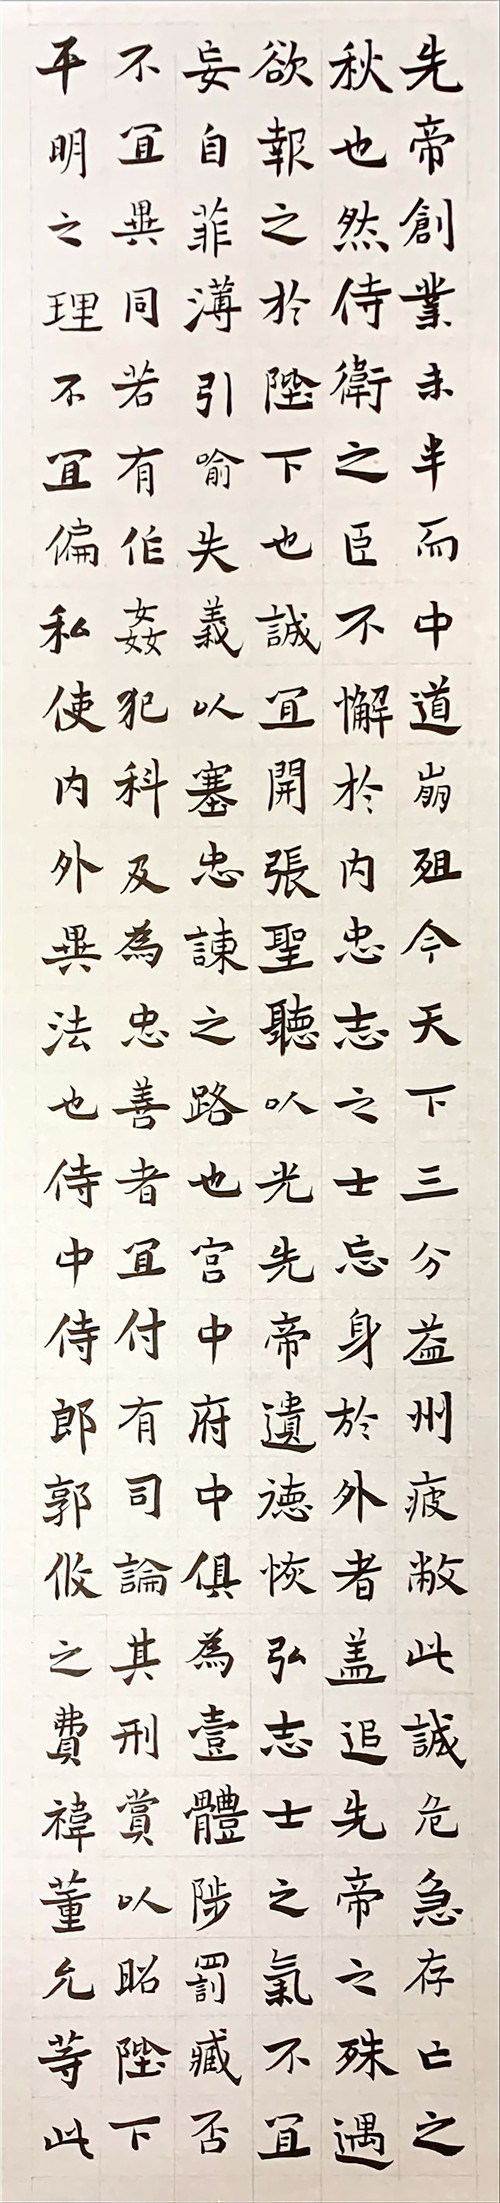 先帝創業未半而中道崩殂今天下三分益州疲敝此誠危急存亡之
秋也然侍衛之臣不懈於内忠志之士忘身於外者盖追先帝之殊遇
欲報之於陛下也誠宜開張聖聽以光先帝遺德恢弘志士之氣不宜
妄自菲薄引喻失義以塞忠諫之路也宮中府中俱為壹體陟罰臧否
不宜異同若有作姦犯科及為忠善者宜付有司論其刑賞以昭陛下
平明之理不宜偏私使内外異法也侍中侍郎郭攸之費禕董允等此